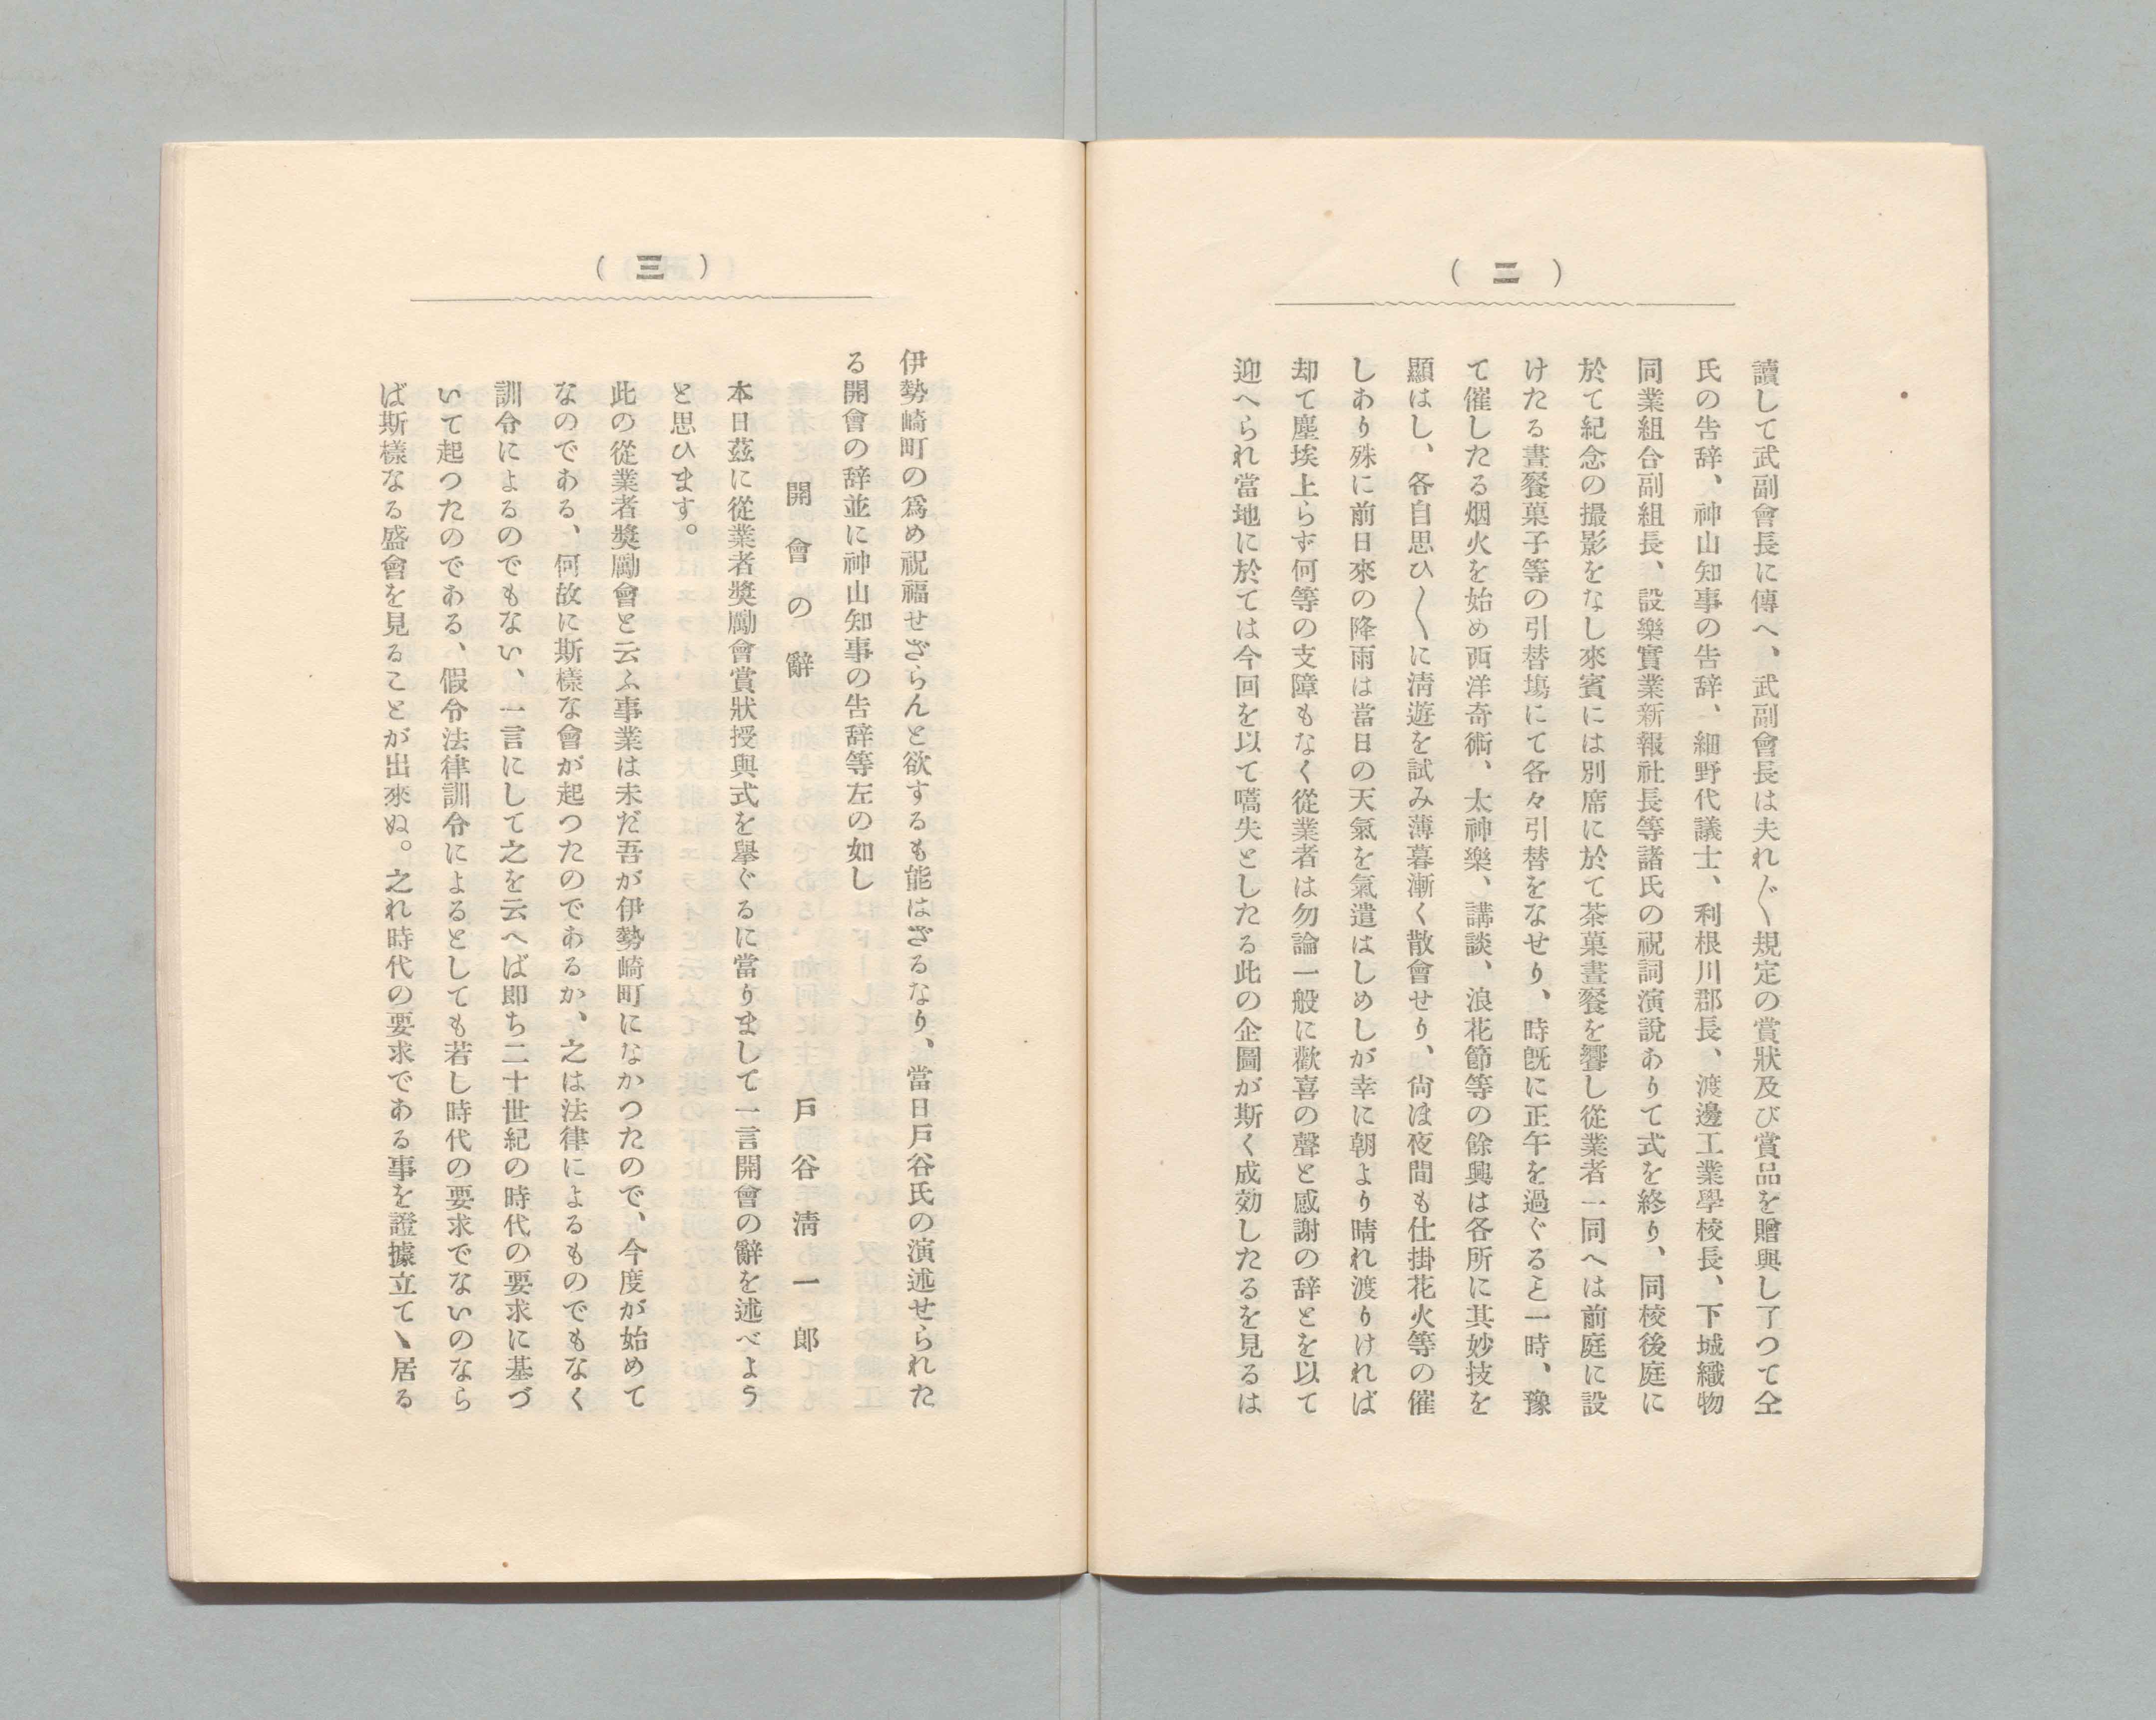 （二）
讀して武副會長に傳へ、武副會長は夫れ〴〵規定の賞狀及び賞品を贈與し了つて仝
氏の告辞、神山知事の告辞、細野代議士、利根川郡長、渡邊工業學校長、下城織物
同業組合副組長、設樂實業新報社長等諸氏の祝詞演說ありて式を終り、同校後庭に
於て紀念の撮影をなし來賓には別席に於て茶菓晝餐を饗し從業者一同へは前庭に設
けたる晝餐菓子等の引替塲にて各々引替をなせり、時既に正午を過ぐると一時、豫
て催したる烟火を始め西洋奇術、太神樂、講談、浪花節等の餘興は各所に其妙技を
顯はし、各自思ひ〳〵に淸遊を試み薄暮漸く散會せり、尙ほ夜間も仕掛花火等の催
しあり殊に前日來の降雨は當日の天氣を氣遣はしめしが幸に朝より晴れ渡りければ
却て塵埃上らず何等の支障もなく從業者は勿論一般に歡喜の聲と感謝の辞とを以て
迎へられ當地に於ては今回を以て嚆失としたる此の企圖が斯く成効したるを見るは
（三）
伊勢崎町の爲め祝福せざらんと欲するも能はざるなり、當日戶谷氏の演述せられた
る開會の辞並に神山知事の告辞等左の如し
開會の辭　戶谷淸一郎
本日茲に從業者奬勵會賞狀授與式を擧ぐるに當りまして一言開會の辭を述べよう
と思ひます。
此の從業者奬勵會と云ふ事業は未だ吾が伊勢崎町になかつたので、今度が始めて
なのである、何故に斯樣な會が起つたのであるか、之は法律によるものでもなく
訓令によるのでもない、一言にして之を云へば即ち二十世紀の時代の要求に基づ
いて起つたのである、假令法律訓令によるとしても若し時代の要求でないのなら
ば斯樣なる盛會を見ることが出來ぬ。之れ時代の要求である事を證據立てゝ居る